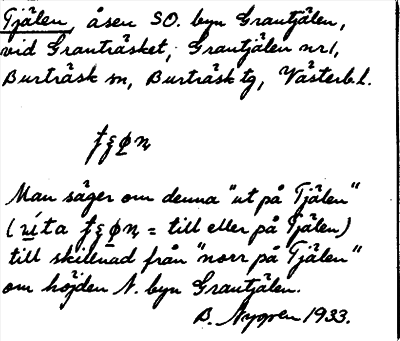 Tjälen, åsen SO. byn Grantjälen,
vid Granträsket, Grantjälen nr 1,
Burträsk sn, Burträsk tg, Västerb. l.
Man säger om denna "ut på Tjälen"
( = till eller på Tjälen)
till skillnad från "norr på Tjälen"
om höjden N. byn Grantjälen.
B. Nygren 1933.